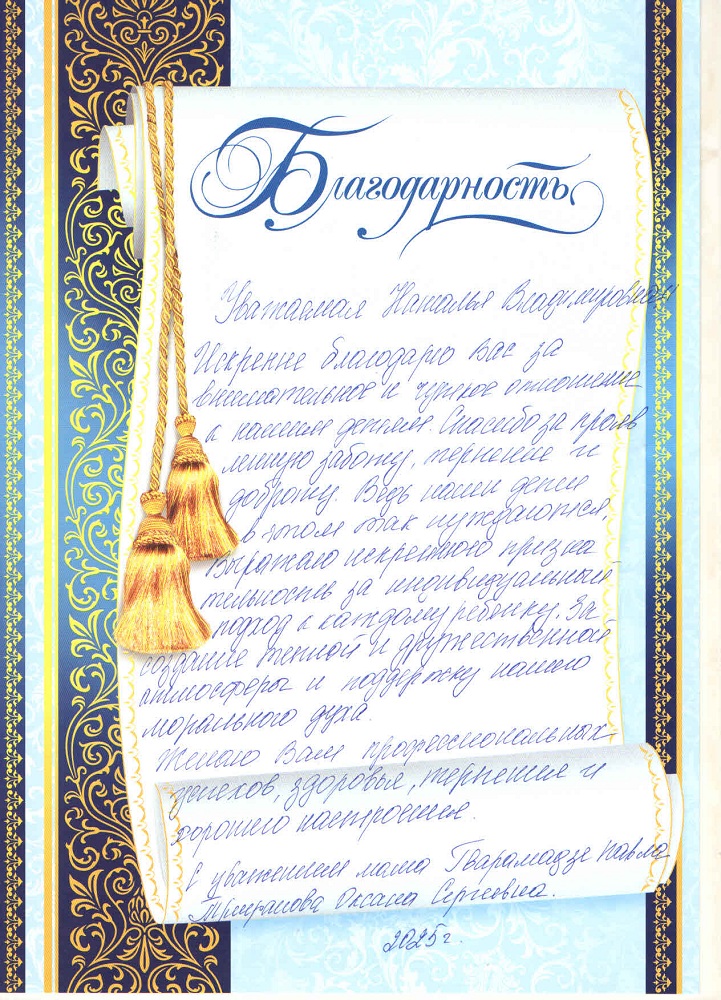 Благодарность
Уважаемая Наталья Владимировна!
Искренне благодарю Вас за
внимательное и чуткое отношение
к нашим детям. Спасибо за прояв
ленную заботу, терпение и
доброту. Ведь наши дети
в этом так нуждаются.
Выражаю искреннюю призна
тельность за индивидуальный
подход к каждому ребёнку. За
создание теплой и дружественной
атмосферы и поддержку нашего
морального духа.
Желаю Вам профессиональных
успехов, здоровья, терпения и
хорошего настроения.
С уважением мама Гварамадзе Павла
Оксана Сергеевна.
2025 г.